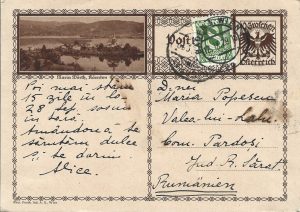 Maria Wörth, Kärnten
Postkarte
Österreich
8
Poi mai stem
15 zile in
28 sep. sosim
in tară.
Amândouă te
sărutăm dulce
și te dorim
Alice.
Dnei
Maria Popescu
Valea-lui-
Com. Pardoși
Jud R. Sărat.
Rumänien